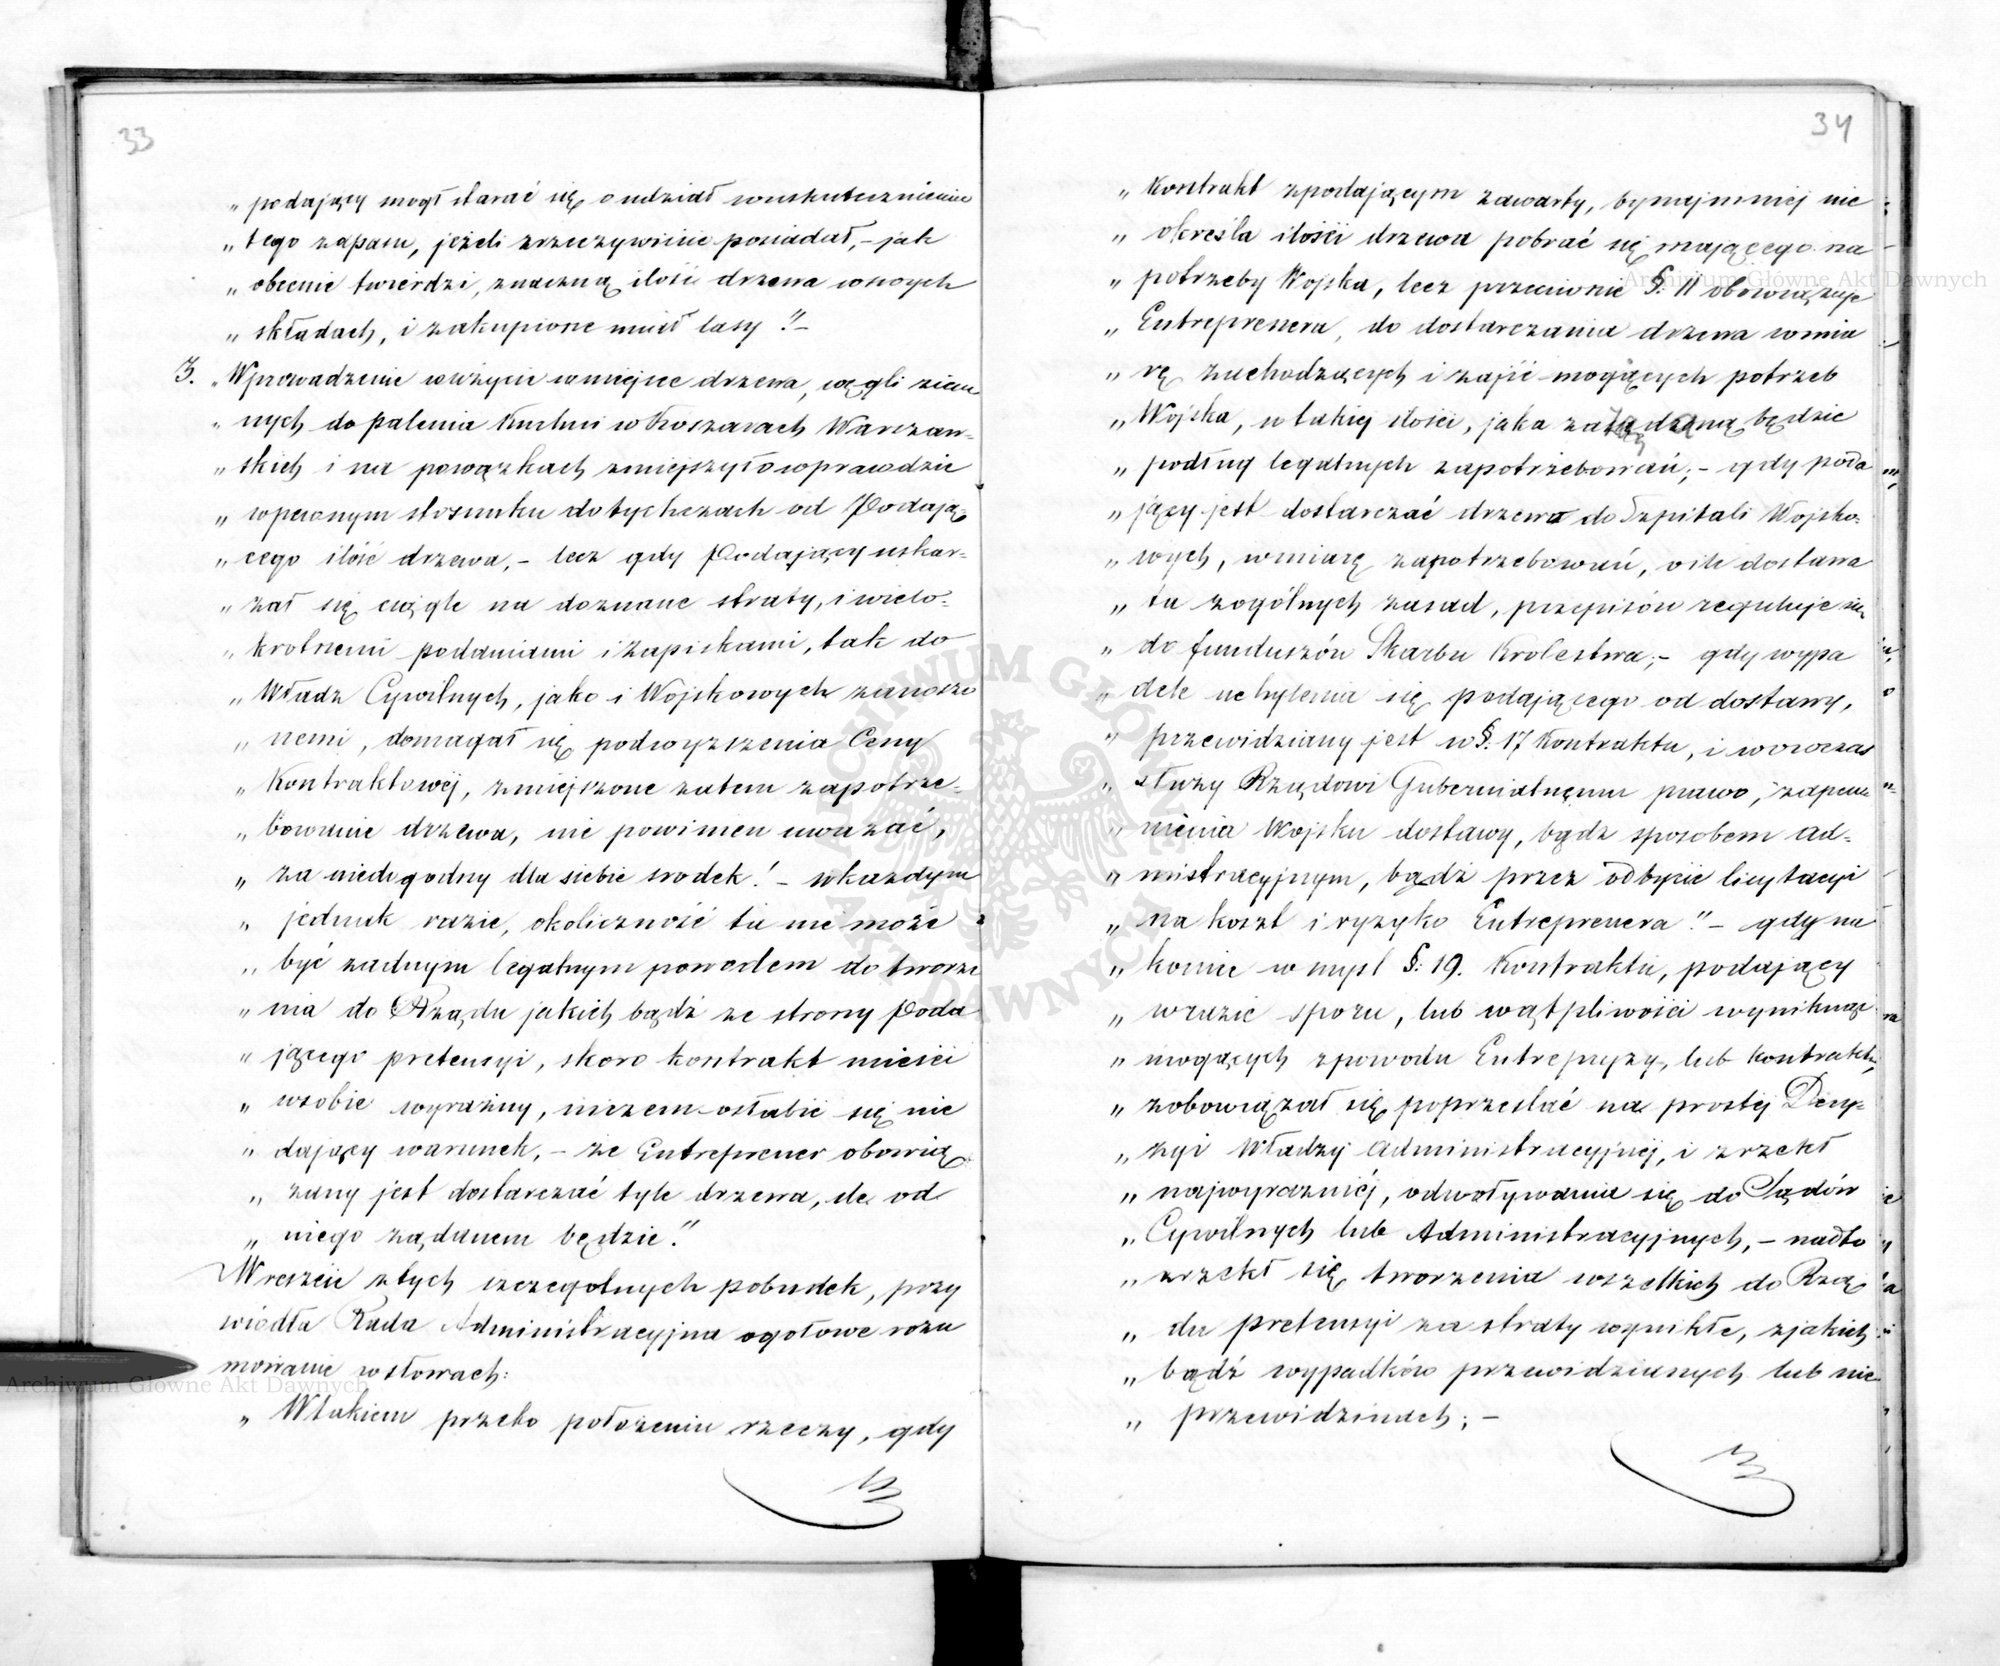 33
„ podający mogł starać się o udział w uskutecznieniu
„ tego zapasu, jeżeli zrzeczywiście posiadał, – jak
„ obecnie twierdzi, znaczną ilość drzewa w swych
„ składach, i zakupione miał lasy." –
3. „ Wprowadzenie w użycie w miejsce drzewa, węgli ziem
„ nych do palenia Kuchni w Koszarach Warszaw-
„ skich i na powązkach zmiejszyło wprawdzie
„ w pewnym stosunku dotychczach od Podają
„ cego ilość drzewa, – lecz gdy Podający uskar-
„ żał się ciągle na doznane straty, i wielo-
„ krotnemi podaniami i zapiskami, tak do
„ Władz Cywilnych, jako i Wojskowych zanoszo
„ nemi, domagał się podwyższenia Ceny
„ Kontraktowéj, zmiejszone zatem zapotrze-
„ bowanie drzewa, nie powinien uważać,
„ za niedogodny dla siebie srodek! – w każdym
„ jednak razie, okoliczność ta nie może
„ być żadnym legalnym powodem do tworze
„ nia do Rządu jakich bądź ze strony Poda
„ jącego pretensyi, skoro kontrakt mieści
„ w sobie wyraźny, niczem osłabić się nie
„ dający warunek, – że Entreprener obowią
„ zany jest dostarczać tyle drzewa, ile od
„ niego żądanem będzie."
Wreszcie z tych szczególnych pobudek, przy
wiodła Rada Administracyjna ogołowe rozu
mowanie w słowach:
„ W takiem przeto położeniu rzeczy, gdy
34
„ Kontrakt z podającym zawarty, bynajmniej nie
„ określa ilości drzewa pobrać się mającego na
„ potrzeby Wojska, lecz przeciwnie §: 11 obowiązuje
„ Entreprenera, do dostarczania drzewa w mia
„ rę zachodzących i zajść mogących potrzeb
„ Wojska, w takiej ilości, jaka zażądaną będzie
„ podług legalnych zapotrzebowań; – gdy poda
„ jący jest dostarczać drzewa do Szpitali Wojsko-
„ wych, w miarę zapotrzebowań, o ile dostawa
„ ta z ogólnych zasad, przepisów reguluje się
„ do funduszów Skarbu Krolestwa; – gdy wypa
„ dek uchylenia się podającego od dostawy,
„ przewidziany jest w §: 17 Kontraktu, i wowczas
„ służy Rządowi Gubernialnemu prawo, zapew
„ nienia Wojsku dostawy, bądź sposobem ad-
„ mistracyjnym, bądź przez odbycie licytacyi
„ na koszt i ryzyko Entreprenera." – gdy na
„ koniec w mysl §: 19. Kontraktu, podający
„ w razie sporu, lub wątpliwości wyniknąć
„ mogących z powodu Entrepryzy, lub kontraktu,
„ zobowiązał się poprzestać na prostéj Decy-
„ zyi Władzy Administracyjnéj, i zrzekł
„ najwyraźniéj, odwoływania się do Sądów
„ Cywilnych lub Administracyjnych, – nadto
„ zrzekł się tworzenia wszelkich do Rzą
„ du pretensyi za straty wynikłe, z jakich
„ bądź wypadków przewidzianych lub nie
„ przewidzianych; –
Archiwum Główne Akt Dawnych
Archiwum Główne Akt Dawnych
ARCHIWUM GŁÓWNE AKT DAWNYCH